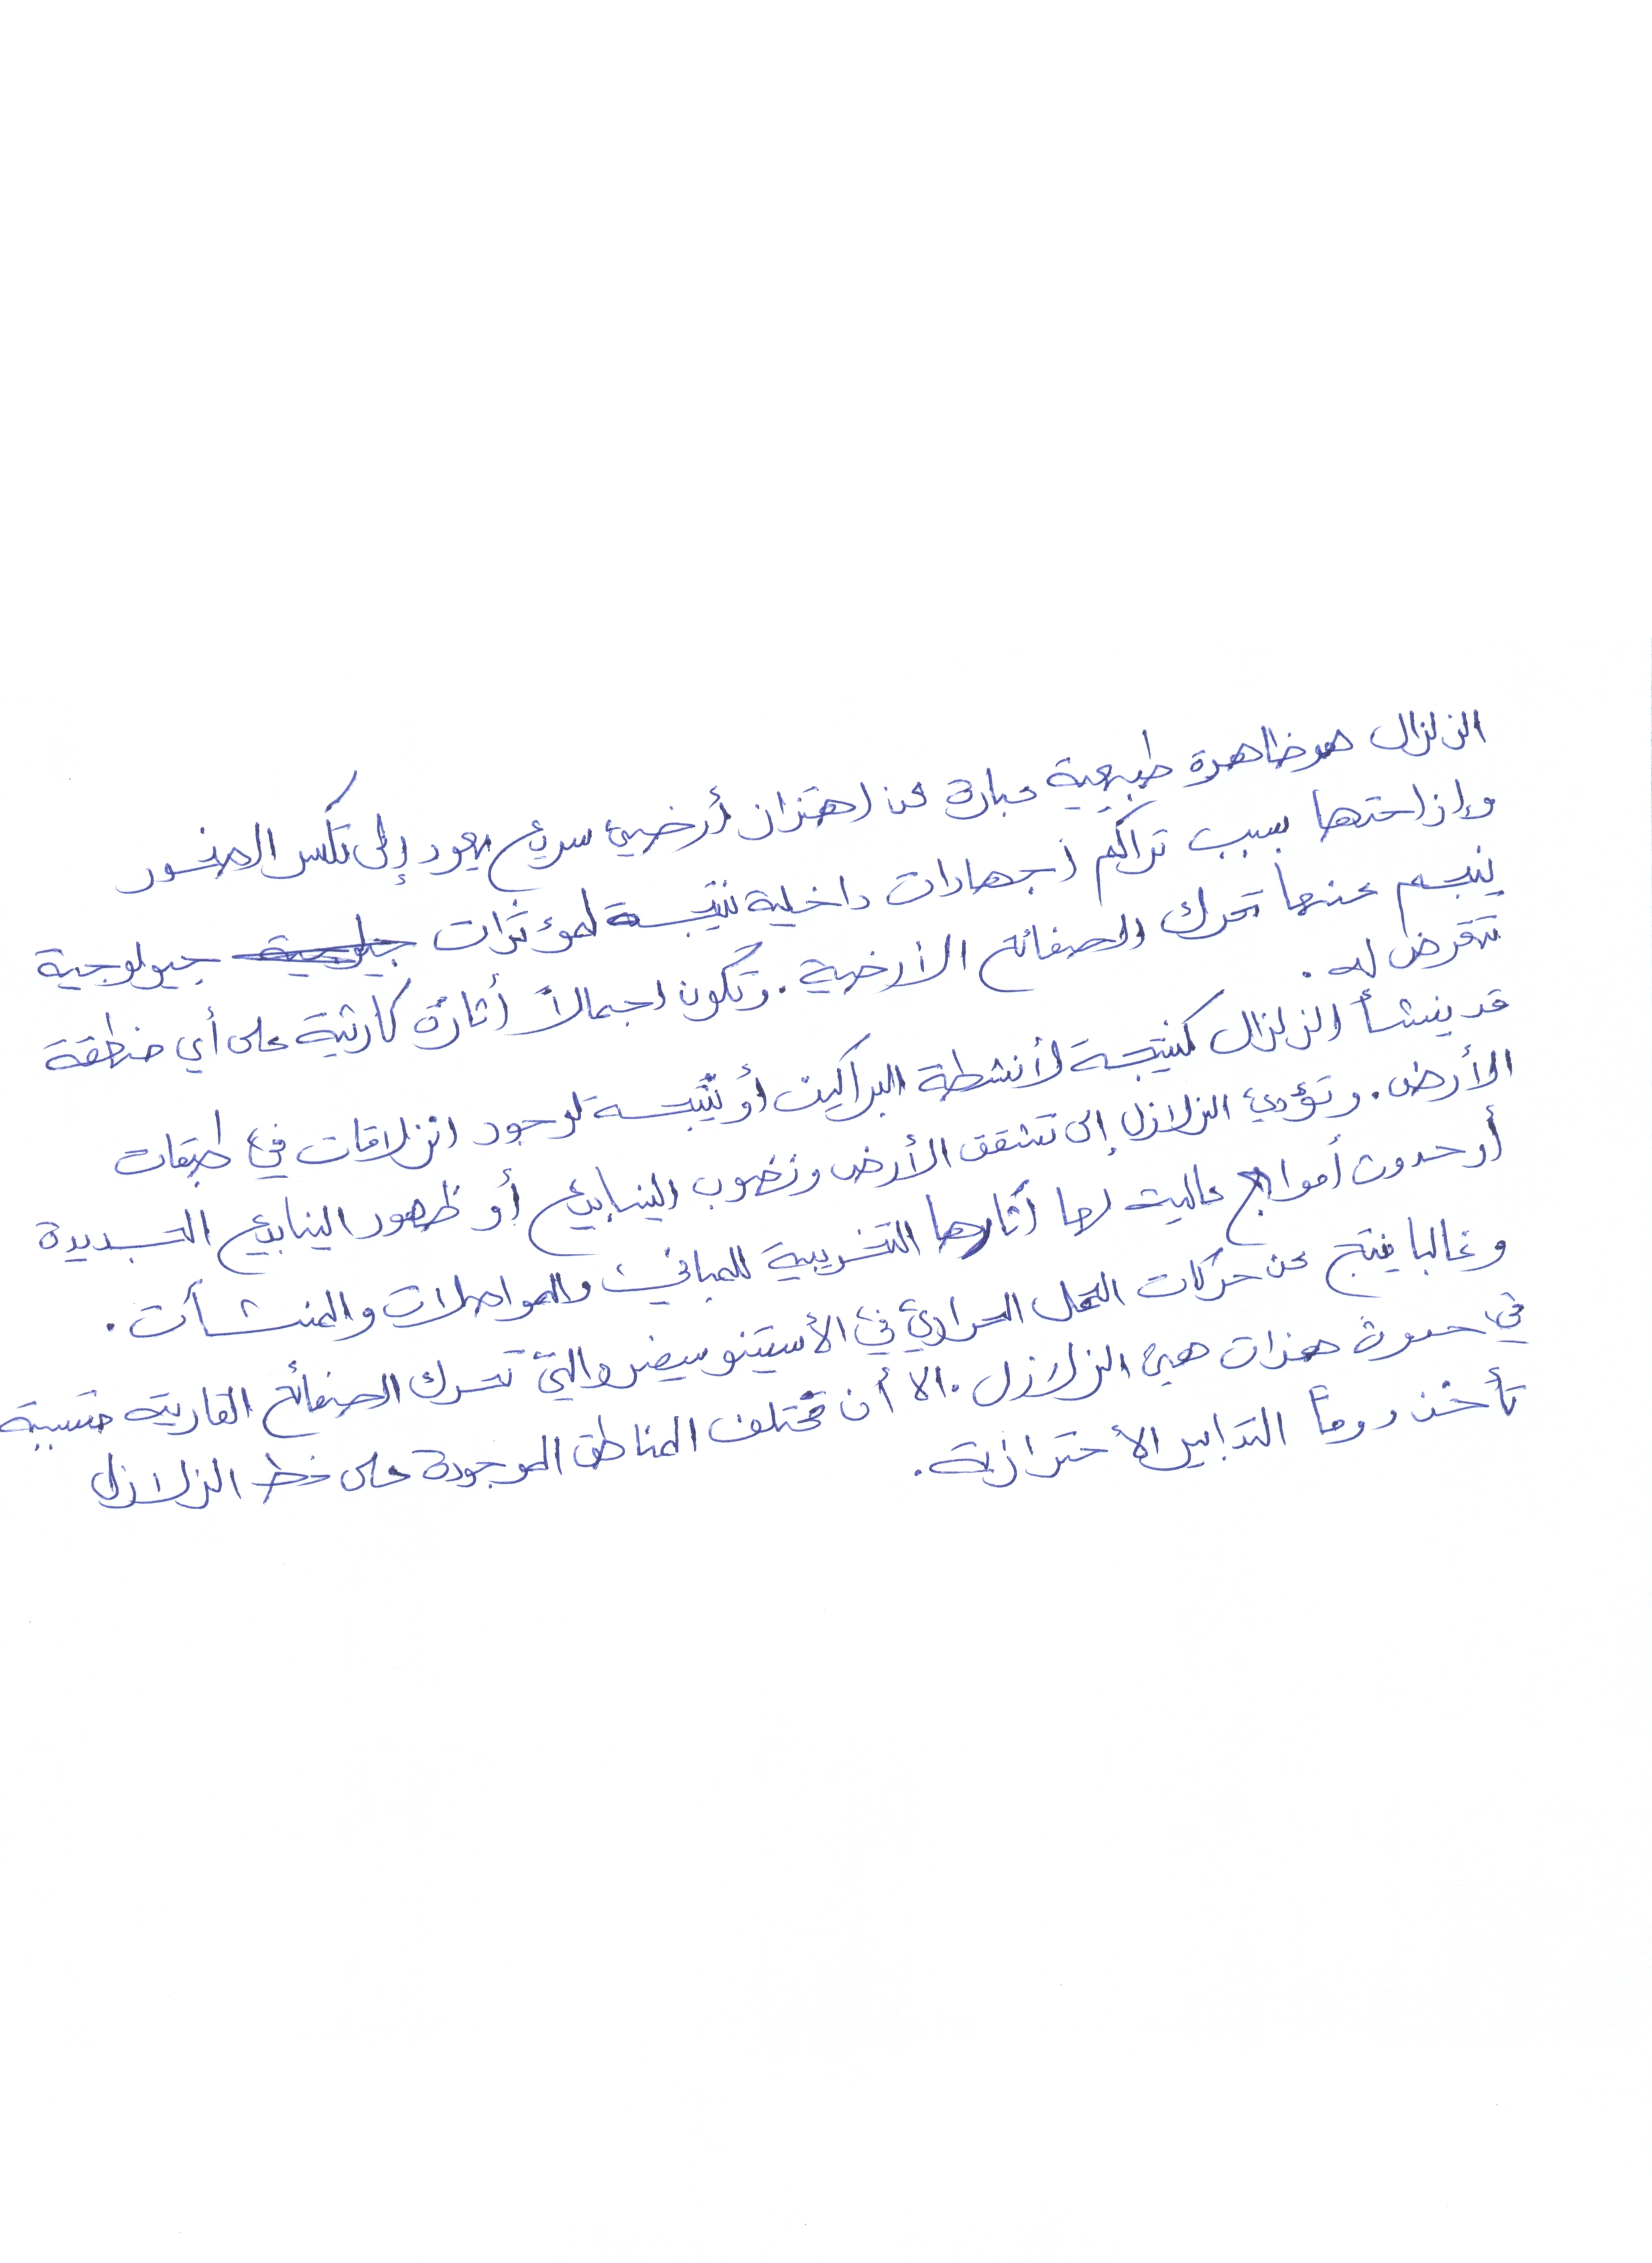 الزلزال هو ظاهرة طبيعية عبارة عن اهتزاز أرضي سريع يعود إلى تكسر الصخور
وإزاحتها بسبب تراكم اجهادات داخلية نتيجة لمؤثرات جيولوجية جيولوجية
ينجم عنها تحرك الصفائح الأرضية. وتكون اجمالاً أثاره كارثية على أي منطقة
تتعرض له.
قد ينشأ الزلزال كنتيجة لأنشطة البراكين أو نتيجة لوجود انزلاقات في طبقات
الأرض. وتؤدي الزلازل إلى تشقق الأرض ونضوب الينابيع أو ظهور الينابيع الجديدة
أو حدوث أمواج عالية لها أثارها التخريبية للمباني والمواصلات والمنشآت.
وغالبا ينتج عن حركات الحمل الحراري في الأستينوسفير والتي تحرك الصفائح القارية متسببة
في حدوث هزات هي الزلازل. الا أن مختلف المناطق الموجودة على خط الزلازل
تأخذ دوماً التدابير الأحترازية.